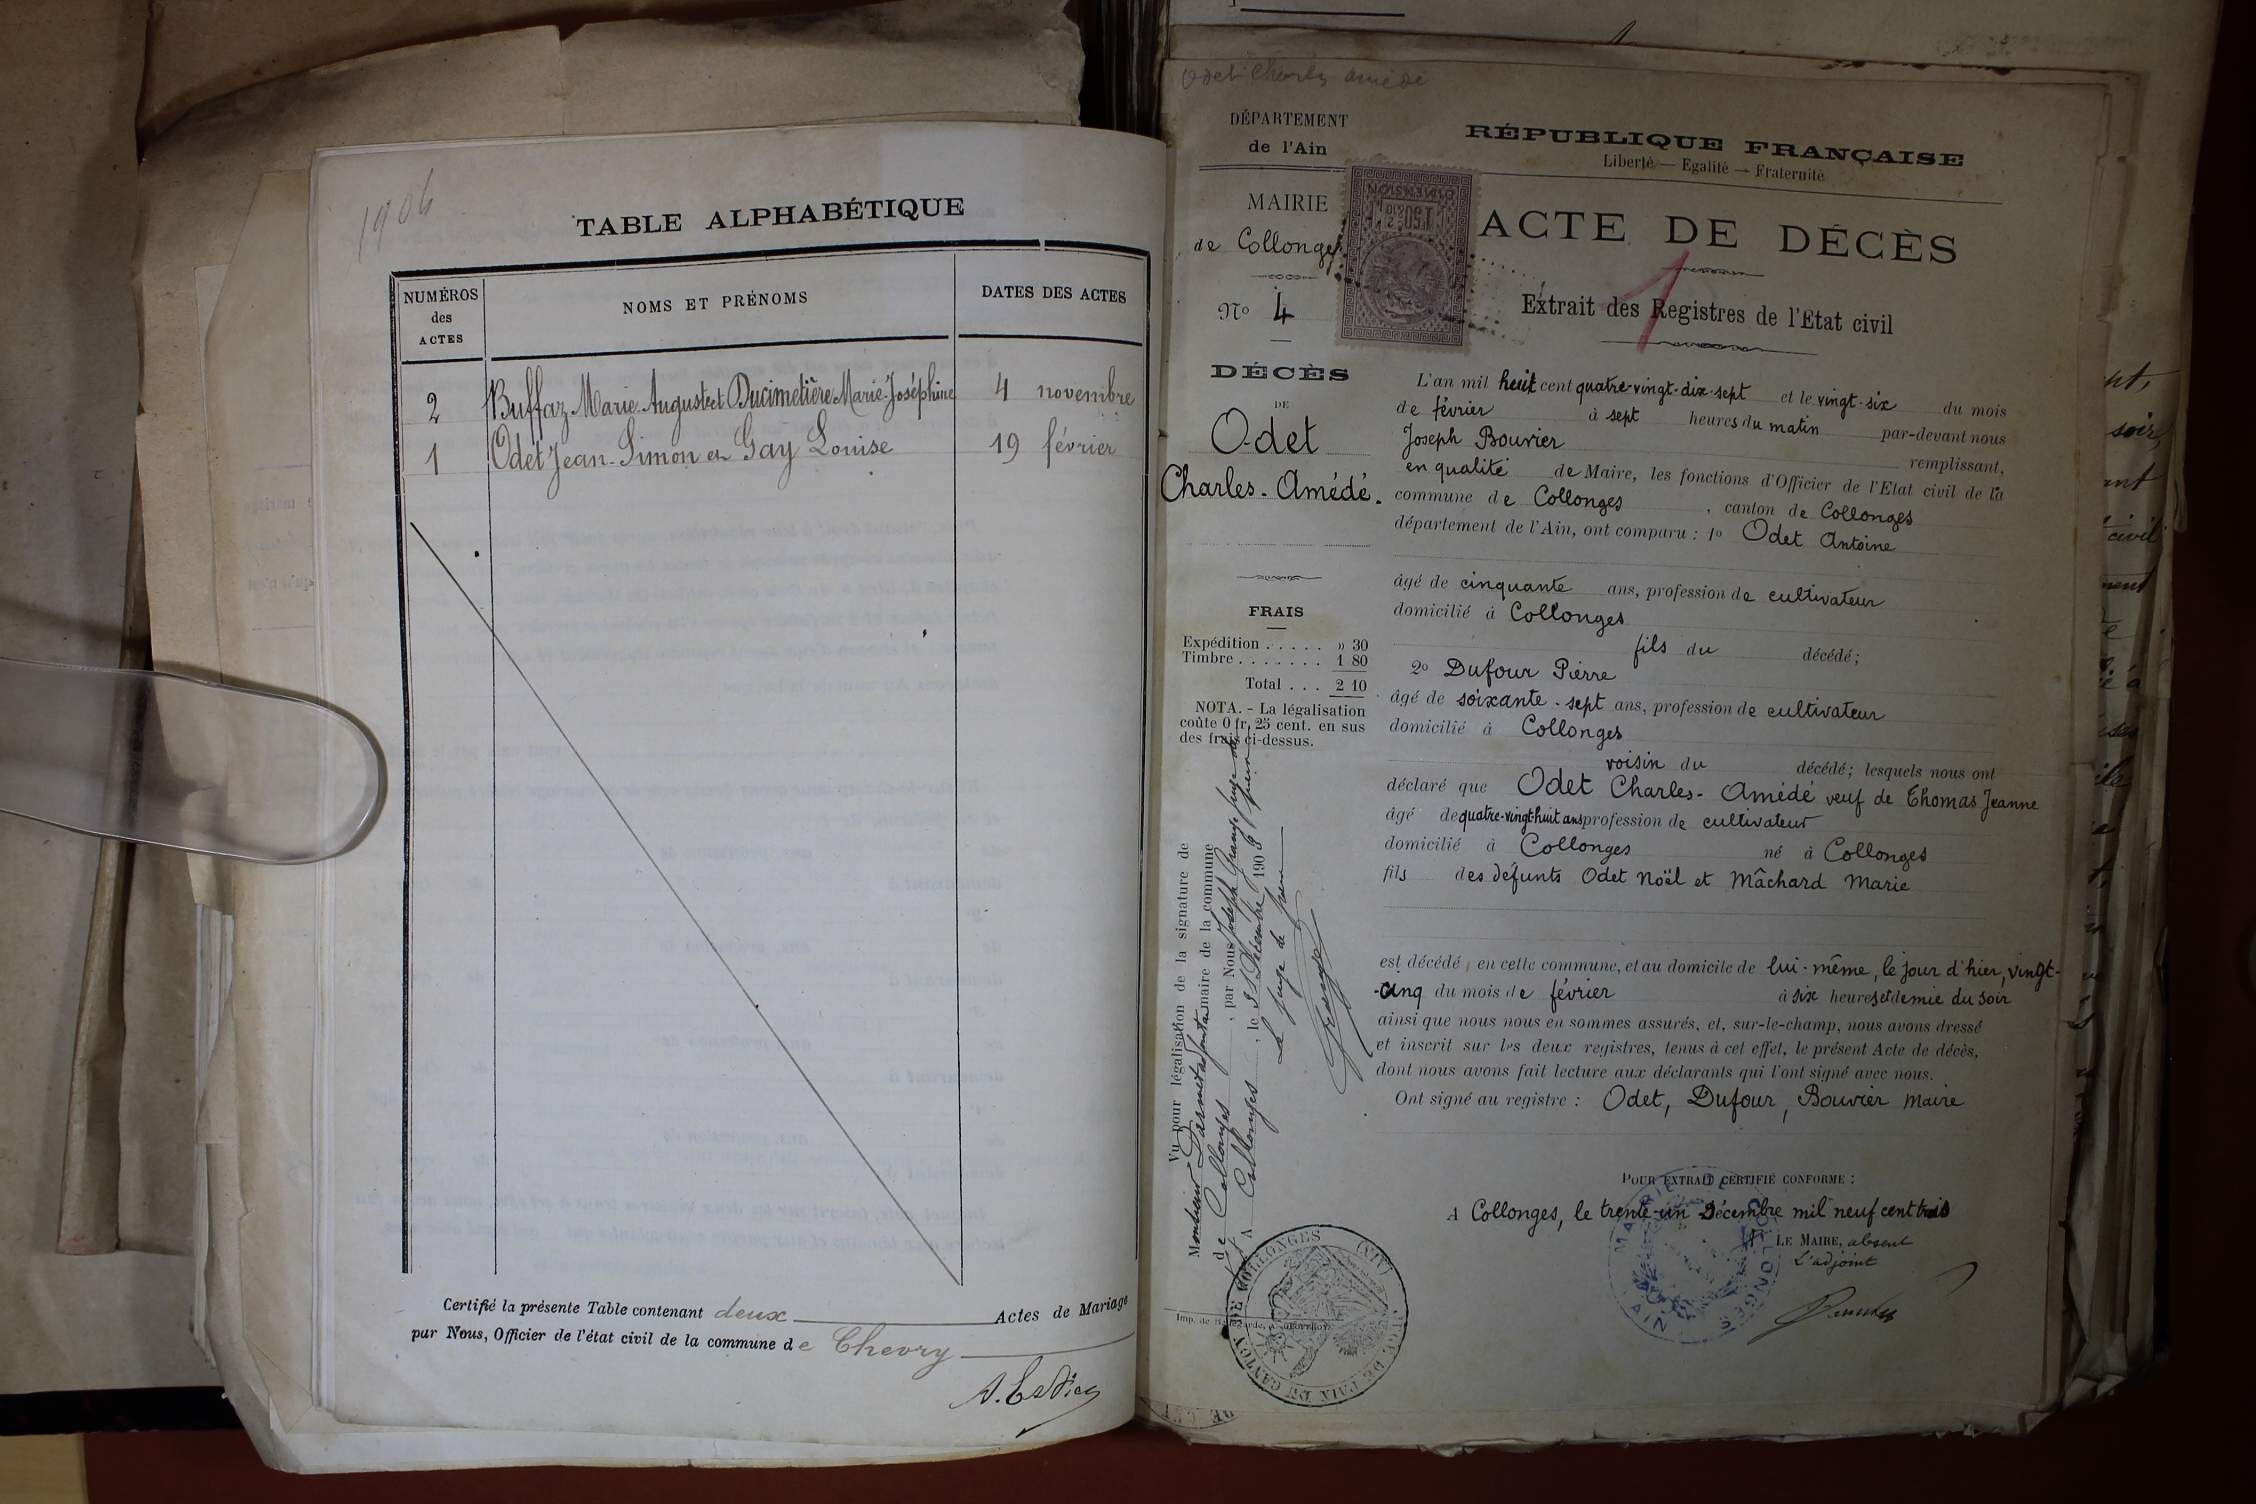 1904
TABLE ALPHABÉTIQUE
NUMÉROS
des
ACTES
NOMS ET PRÉNOMS
DATES DES ACTES
2 Buffaz Marie Auguste et Ducimetière Marie-Joséphine 4 novembre
1 Odet Jean-Simon et Gay Louise 19 février
Certifié la présente Table contenant deux Actes de Mariage
par Nous, Officier de l'état civil de la commune de Chevry
Odet Charles Amédé
DÉPARTEMENT
de l'Ain
MAIRIE
de Collonges
No 4
DÉCÈS
DE
Odet
Charles-Amédé.
FRAIS
Expédition . . . . . » 30
Timbre . . . . . . . 1 80
Total . . . 2 10
NOTA. - La légalisation
coûte 0 fr. 25 cent. en sus
des frais ci-dessus.
Vu pour légalisation de la signature de
Monsieur maire de la commune
de Collonges, par Nous Joseph Grange juge de
A Collonges, le 31 Décembre 1903
Le juge de paix
Grange
JUGE DE PAIX DU CANTON DE COLLONGES (AIN)
RÉPUBLIQUE FRANÇAISE
Liberté — Egalité — Fraternité
DIMENSION
ACTE DE DÉCÈS
1
Extrait des Registres de l'Etat civil
L'an mil huit cent quatre-vingt-dix-sept et le vingt-six du mois
de février à sept heures du matin par-devant nous
Joseph Bouvier remplissant,
en qualité de Maire, les fonctions d'Officier de l'Etat civil de la
commune de Collonges, canton de Collonges
département de l'Ain, ont comparu : 1o Odet Antoine
âgé de cinquante ans, profession de cultivateur
domicilié à Collonges
fils du décédé;
2o Dufour Pierre
âgé de soixante-sept ans, profession de cultivateur
domicilié à Collonges
voisin du décédé; lesquels nous ont
déclaré que Odet Charles-Amédé veuf de Thomas Jeanne
âgé de quatre-vingt-huit ans profession de cultivateur
domicilié à Collonges né à Collonges
fils des défunts Odet Noël et Mâchard Marie
est décédé, en cette commune, et au domicile de lui-même, le jour d'hier, vingt-
-cinq du mois de février à six heures et demie du soir
ainsi que nous nous en sommes assurés, et, sur-le-champ, nous avons dressé
et inscrit sur les deux registres, tenus à cet effet, le présent Acte de décès,
dont nous avons fait lecture aux déclarants qui l'ont signé avec nous.
Ont signé au registre : Odet, Dufour, Bouvier maire
POUR EXTRAIT CERTIFIÉ CONFORME :
A Collonges, le trente-un Décembre mil neuf cent trois
LE MAIRE, absent
L'adjoint
MAIRIE DE COLLONGES
AIN